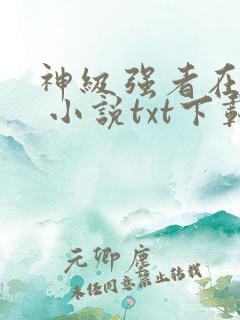 神级强者在
小说txt下载
元卿尘
未经同意禁止转载